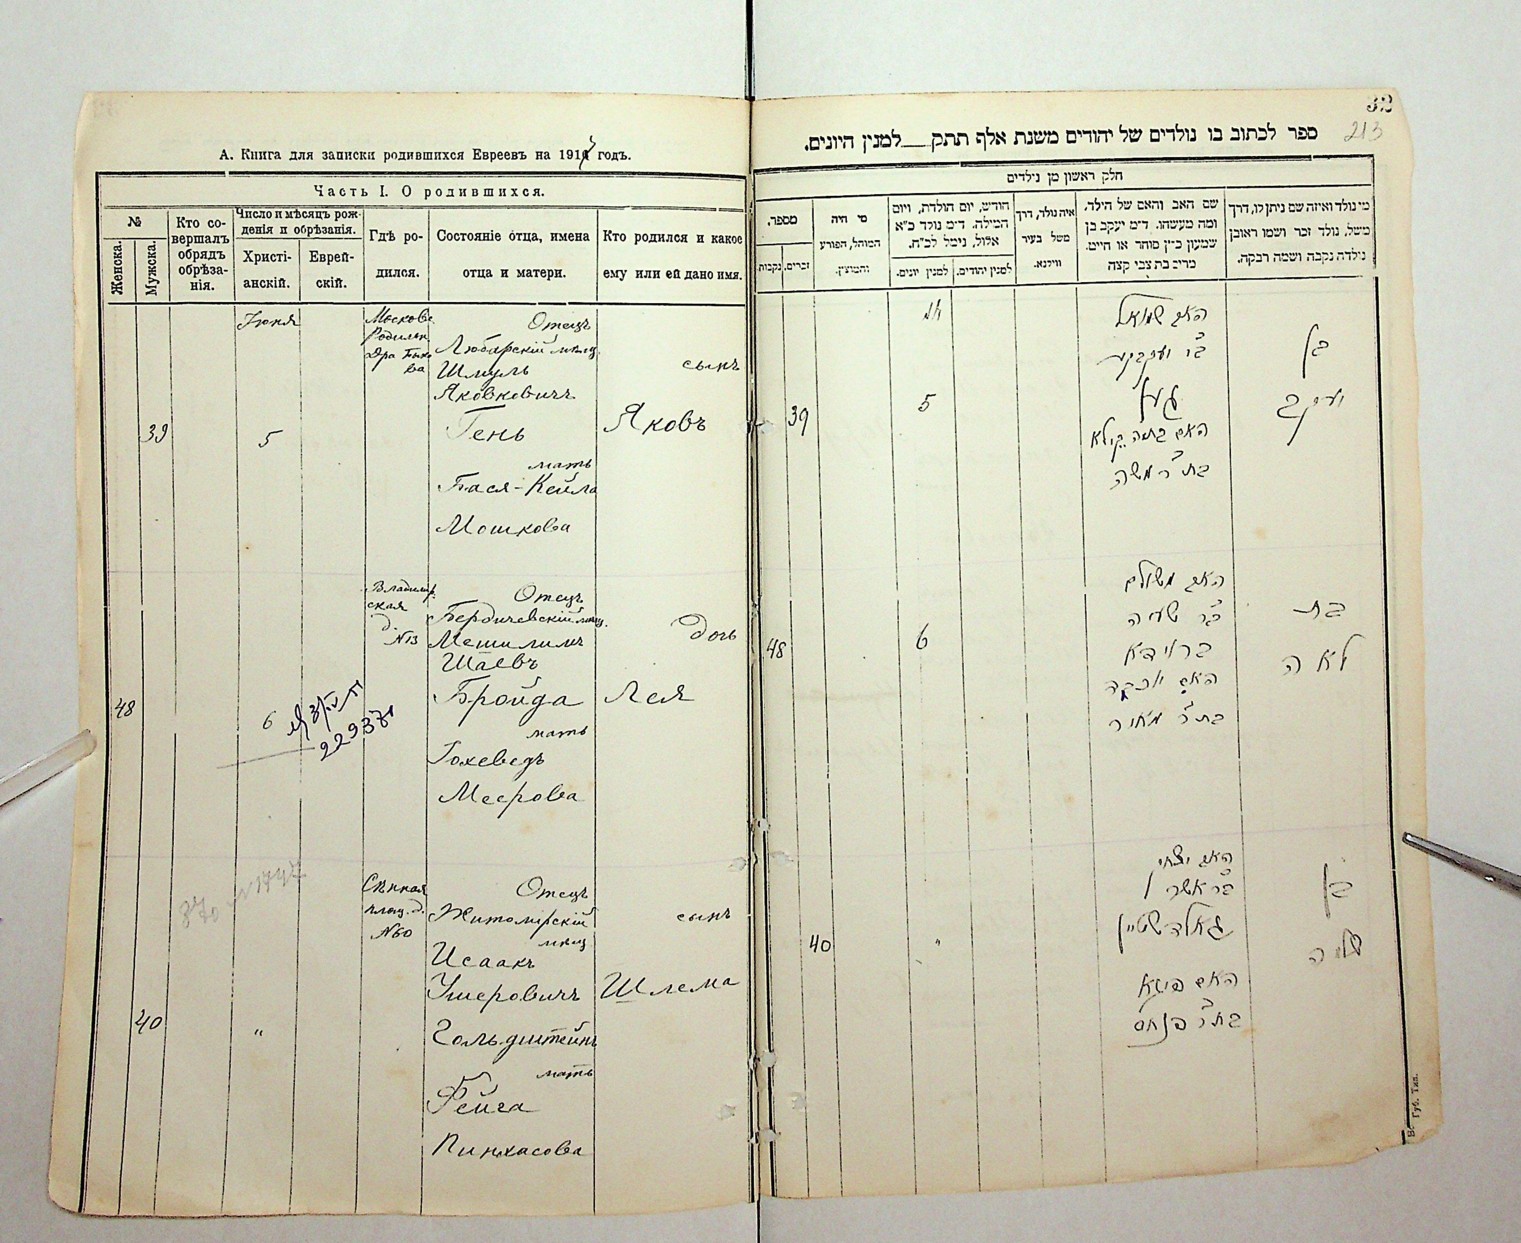 А. Книга для записки родившихся Евреевъ на 1917 годъ.
Часть I. О родившихся.
№
Женска.
Мужска.
Кто со-
вершалъ
обрядъ
обрѣза-
нія.
Число и мѣсяцъ рож-
денія и обрѣзанія.
Христі-
анскій.
Еврей-
скій.
Гдѣ ро-
дился.
Состояніе отца, имена
отца и матери.
Кто родился и какое
ему или ей дано имя.
39
Іюня
5
Отецъ
Любарскій мѣщ.
Шмуль
Яковковичъ
Гень
мать
Бася-Кейла
Мошкова
сынъ
Яковъ
48
6
229371
Владимір
ская
д.
№13
Отецъ
Бердичевскій мѣщ.
Мешилимъ
Шаевъ
Бройда
мать
Іохеведъ
Меерова
дочь
Лея
40
"
Сѣнная
площ. д.
№60
Отецъ
Житомірскій
мѣщ
Исаакъ
Ушеровичъ
Гольдштейнъ
мать
Фейга
Пинхасова
сынъ
Шлема
32
213
ספר לכתוב בו נולדים של יהודים משנת אלף תתק למנין היונים.
חלק ראשון מן נולדים
מספר.
נקבות
זכרים.
מי היה
המוהל, הפורע
והמוצץ.
חודש, יום הולדת, ויום
המילה. דימ נולד כ"א
אלול, נימל לכ"ח.
למנין יונים.
למנין יהודים.
איה נולד, דרך
משל בעיר
ווילנא.
שם האב והאם של הילד,
ומה מעשהו. דימ יעקב בן
שמעון כ"ץ סוחר או חייט.
מרים בת צבי קצה
מי נולד ואיזה שם ניתן לו, דרך
משל, נולד זכר ושמו ראובן
נילדה נקבה ושמה רבקה.
39
5
האב שמואל
האם בתיה קילא
בת ר' משה
בן
יעקב
48
6
האב משולם
ב"ר שעיה
ברוידא
האם יוכבד
בת ר' מאיר
בת
לאה
40
"
האב יצחק
ב"ר אשר
גאלדשטיין
האם פיגא
בת ר' פנחס
בן
שלמה
Губ. Тип.